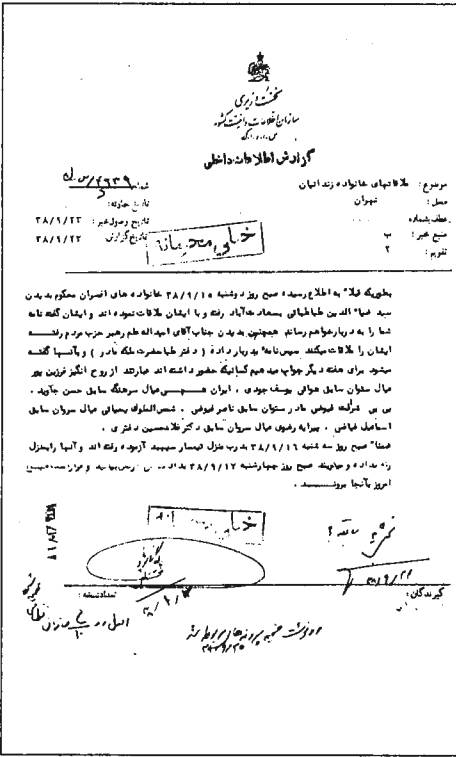 نخست وزیری
سازمان اطلاعات و امنیت کشور
س.ا.و.ا.ک
گزارش اطلاعات داخلی
موضوع : ملاقاتهای خانواده زندانیان
محل : تهران
عطف بشماره
منبع خبر : ب
تقویم : ۲
شماره
تاریخ حادثه :
تاریخ وصول خبر : ۳۸/۹/۲۲
تاریخ گزارش ۳۸/۹/۲۲
خیلی محرمانه
بطوریکه قبلا" به اطلاع رسیده صبح روز دوشنبه ۳۸/۹/۱۵ خانواده های افسران محکوم بدیدن
سید ضیا" الدین طباطبائی بسعادت‌آباد رفته و با ایشان ملاقات نموده‌اند و ایشان گفته نامه
شما را به دربار خواهم رساند همچنین بدیدن جناب آقای اسداله علم رهبر حزب مردم رفتــه
ایشان را ملاقات میکنند سپس نامه" بدربار داده ( دفتر علیاحضرت ملکه مادر ) و بآنهــا گفتــه
میشود برای هفته دیگر جواب میدهیم کسانیکه حضور داشته اند عبارتند از روح انگیز فرزین پور
عیال ستوان سابق هوائی یوسف جودی ، ایران عیال سرهنگ سابق حسن جاوید ،
بی بی شرافت فیوضی مادر ستوان سابق ناصر فیوضی ، شمس‌الملوک یحیائی عیال سروان سابق
اسماعیل فیاضی ، پیرایه رضوی عیال سروان سابق دکتر غلامحسین دفتری .
ضمنا" صبح روز سه شنبه ۳۸/۹/۱۶ بدرب منزل تیمسار سپهبد آزموده رفته اند و آنها را بمنزل
راه نداده و میگویند صبح روز چهارشنبه ۳۸/۹/۱۷ بدادرسی ارتش بیائید و قرار است صبــح
امروز بآنجا برونــد .
خیلی
۳۸/۹/۲۲
گیرندگان :
تعداد نسخه :
رونوشت ضمیمه پرونده‌های مربوطه شد